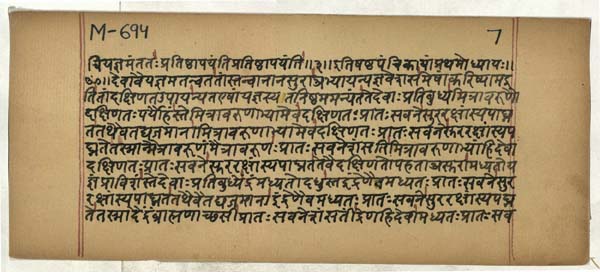 M-694 7
यज्ञमंततः प्रतिष्ठापयंति प्रतिष्ठापयंति ॥३॥ इति षष्ठपंचिकायां प्रथमोध्यायः ॥
देवा वै यज्ञमतन्वत तांस्तन्वानानसुरा अभ्यायन्यज्ञवेशसमेषां करिष्याम इ
ति तांदक्षिणत उपायन्यत एषां यज्ञस्य तनिष्ठममन्यंत ते देवाः प्रतिबुध्य मित्रावरुणौ
दक्षिणतः पर्यौहंस्ते मित्रावरुणाभ्यामेव दक्षिणतः प्रातः सवनेसुररक्षांस्यपाघ्न
त तथैवैतद्यजमाना मित्रावरुणाभ्यामेव दक्षिणतः प्रातः सवनेसुररक्षांस्यप
घ्नते तस्मान्मैत्रावरुणं मैत्रावरुणः प्रातः सवने शंसति मित्रावरुणाभ्यां हि देवा
दक्षिणतः प्रातः सवनेसुररक्षांस्यपाघ्नत ते वै दक्षिणतोपहता असुरा मध्यतो य
ज्ञं प्राविशंस्ते देवाः प्रतिबुध्येंद्रं मध्यतोदधुस्त इंद्रेणैव मध्यतः प्रातः सवनेसुर
रक्षांस्यपाघ्नत तथैवैतद्यजमाना इंद्रेणैव मध्यतः प्रातः सवनेसुररक्षांस्यपघ्न
ते तस्मादैंद्रं ब्राह्मणाच्छंसी प्रातः सवने शंसतींद्रेण हि देवा मध्यतः प्रातः सव